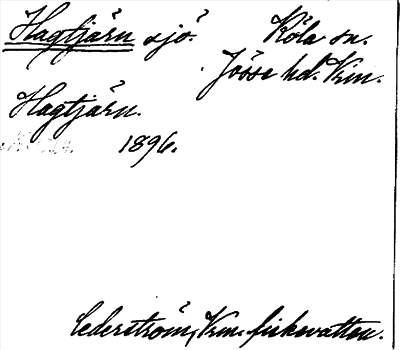 Hagtjärn sjö. Köla sn.
Jösse hd. Vrm.
Hagtjärn.
1896.
Cederström, Vrm. fiskevatten.